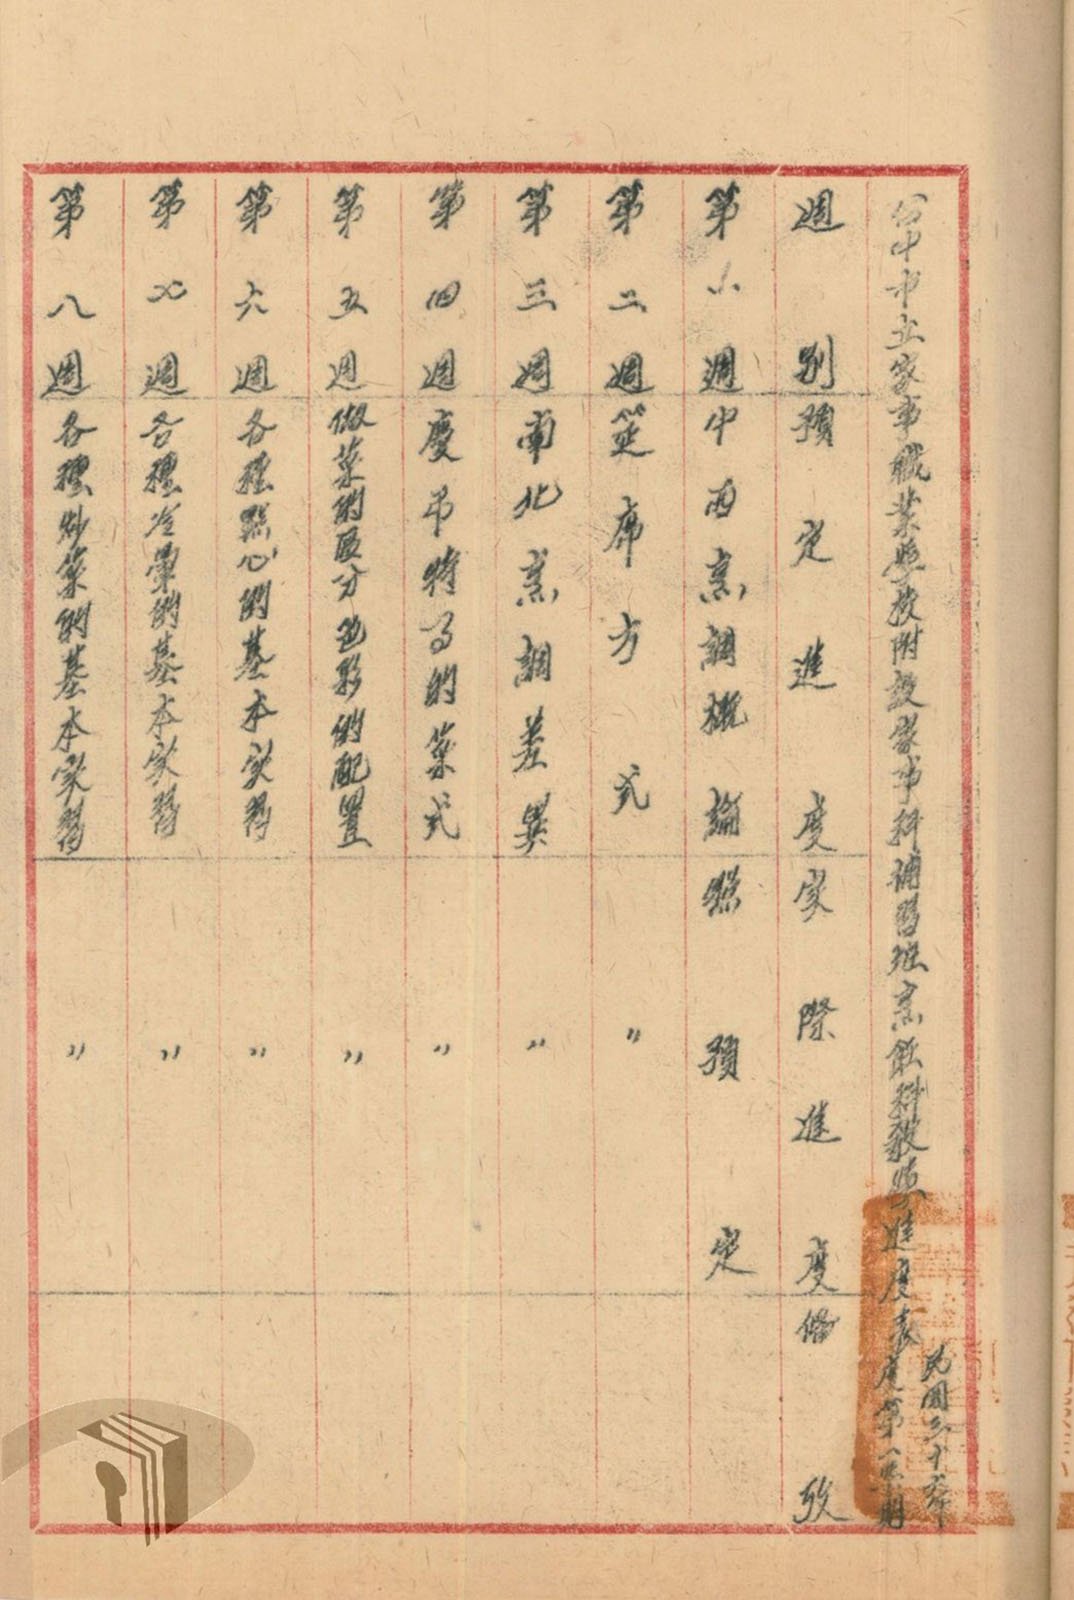 台中市立家事職業學校附設家事科補習班烹飪科教學進度表
民國三十六年度第一學期
週別 預定進度 實際進度 備攷
第一週 中西烹調概論 照預定
第二週 筵席方式 〃
第三週 南北烹調差異 〃
第四週 慶弔特予的菜式 〃
第五週 做菜的區分色彩的配置 〃
第六週 各種點心的基本实習 〃
第七週 各種冷葷的基本实習 〃
第八週 各種炒菜的基本实習 〃